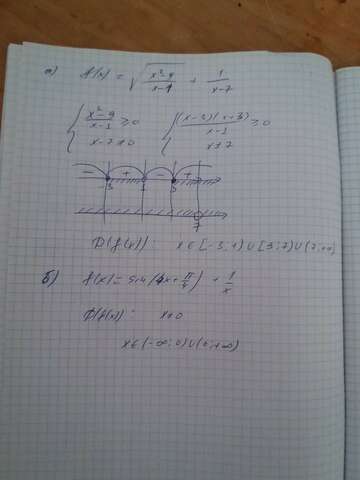 а) f(x) = √((x²-9)/(x-1)) + 1/(x-7)
{ (x²-9)/(x-1) ≥ 0 { ((x-3)(x+3))/(x-1) ≥ 0
x-7 ≠ 0 x ≠ 7
- + - +
-3 1 3
7
D(f(x)): x ∈ [-3; 1) ∪ [3; 7) ∪ (7; +∞)
б) f(x) = sin(4x + π/4) + 1/x
D(f(x)): x ≠ 0
x ∈ (-∞; 0) ∪ (0; +∞)